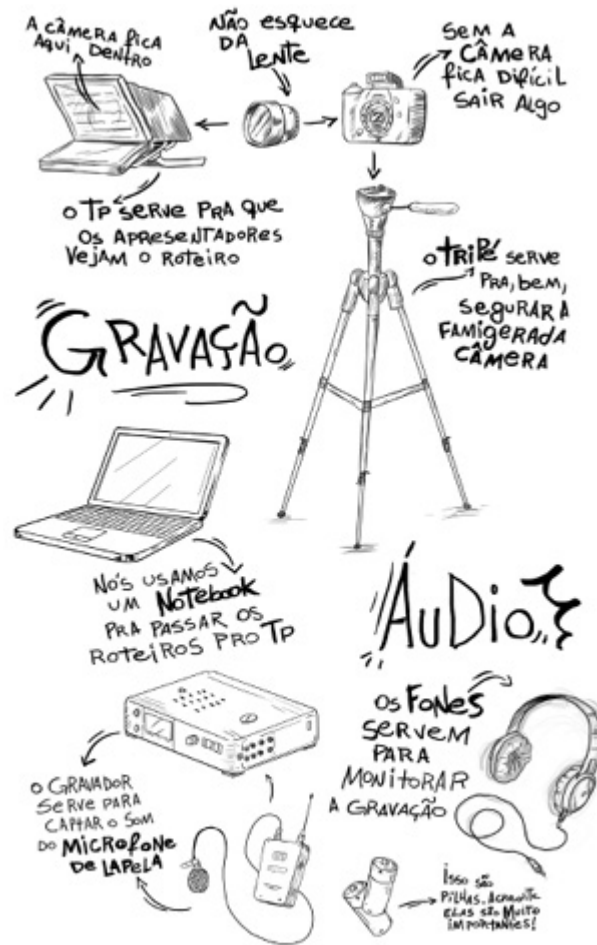 A CÂMERA FICA
AQUI DENTRO
NÃO esquece
DA
LeNte
SEM A
CÂMERA
FICA DIFÍCIL
SAIR ALGO
O TP SERVE PRA QUE
OS APRESENTADORES
VEJAM O ROTEIRO
O TRIPÉ SERVE
PRA, bem,
SEGURAR A
FAMIGERADA
CÂMERA
GRAVAÇÃO
NÓS USAMOS
UM NOTEbook
PRA PASSAR OS
ROTEIROS PRO TP
ÁuDio
OS FONES
SERVEM
PARA
MONITORAR
A GRAVAÇÃO
O GRAVADOR
SERVE PARA
CAPTAR O SOM
DO MICROFONE
DE LAPELA
ISSO SÃO
PILHAS. ACREDITE
ELAS SÃO MUITO
IMPORTANTES!